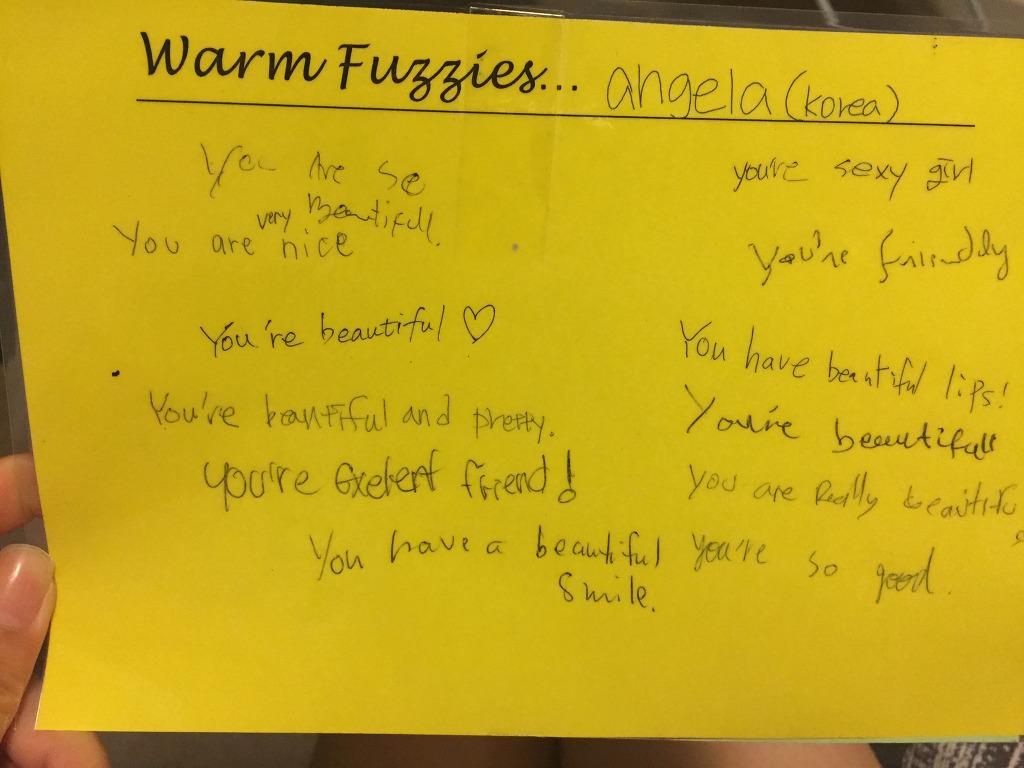 Warm Fuzzies... angela (korea)
You Are So
very Beautifull.
You are nice
You're beautiful ♡
You're beautiful and pretty.
you're Exelent friend!
You have a beautiful
smile.
you're sexy girl
You're friendly
You have beautiful lips!
You're beautifull
you are Really beautifu
you're so good.